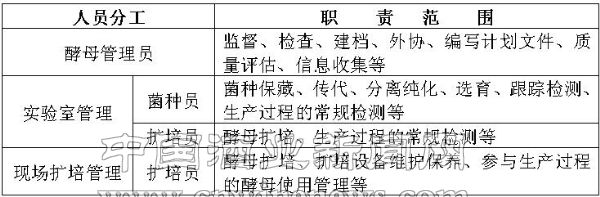 人员分工 职 责 范 围
酵母管理员 监督、检查、建档、外协、编写计划文件、质
量评估、信息收集等
实验室管理 菌种员 菌种保藏、传代、分离纯化、选育、跟踪检测、
生产过程的常规检测等
扩培员 酵母扩培、生产过程的常规检测等
现场扩培管理 扩培员 酵母扩培、扩培设备维护保养、参与生产过程
的酵母使用管理等
中国酒业新闻网